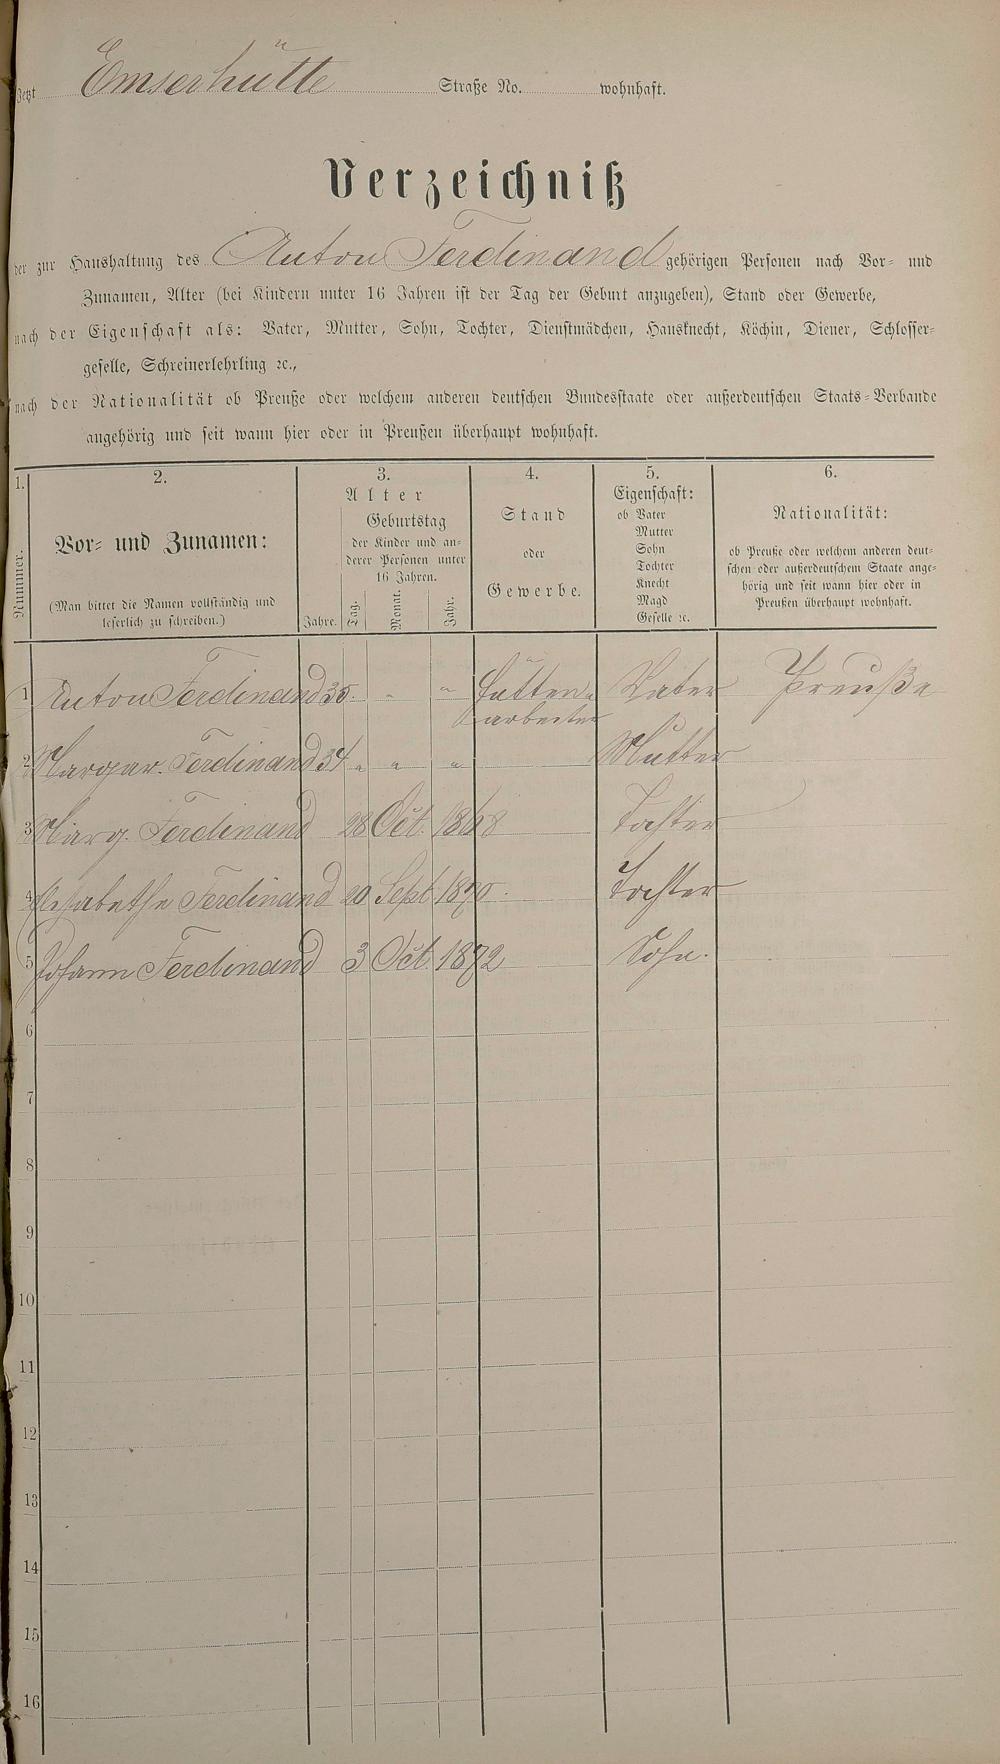 Jetzt Emserhütte Straße No. wohnhaft.
Verzeichniß
der zur Haushaltung des Anton Ferdinand gehörigen Personen nach Vor- und
Zunamen, Alter (bei Kindern unter 16 Jahren ist der Tag der Geburt anzugeben), Stand oder Gewerbe,
nach der Eigenschaft als: Vater, Mutter, Sohn, Tochter, Dienstmädchen, Hausknecht, Köchin, Diener, Schlosser-
geselle, Schreinerlehrling ꝛc.,
nach der Nationalität ob Preuße oder welchem anderen deutschen Bundesstaate oder außerdeutschen Staats-Verbande
angehörig und seit wann hier oder in Preußen überhaupt wohnhaft.
1.
Nummer.
2.
Vor- und Zunamen:
(Man bittet die Namen vollständig und
leserlich zu schreiben.)
3.
Alter
Jahre.
Geburtstag
der Kinder und an-
derer Personen unter
16 Jahren.
Tag.
Monat.
Jahr.
4.
Stand
oder
Gewerbe.
5.
Eigenschaft:
ob Vater
Mutter
Sohn
Tochter
Knecht
Magd
Geselle ꝛc.
6.
Nationalität:
ob Preuße oder welchem anderen deut-
schen oder außerdeutschem Staate ange-
hörig und seit wann hier oder in
Preußen überhaupt wohnhaft.
1 Anton Ferdinand 35. " " Hütten- Vater Preuße
arbeiter
2 Margar. Ferdinand 34 " " " Mutter
3 Marg. Ferdinand 28 Oct. 1868 Tochter
4 Elisabethe Ferdinand 20 Sept 1870. Tochter
5 Johann Ferdinand 3 Oct. 1872 Sohn.
6
7
8
9
10
11
12
13
14
15
16